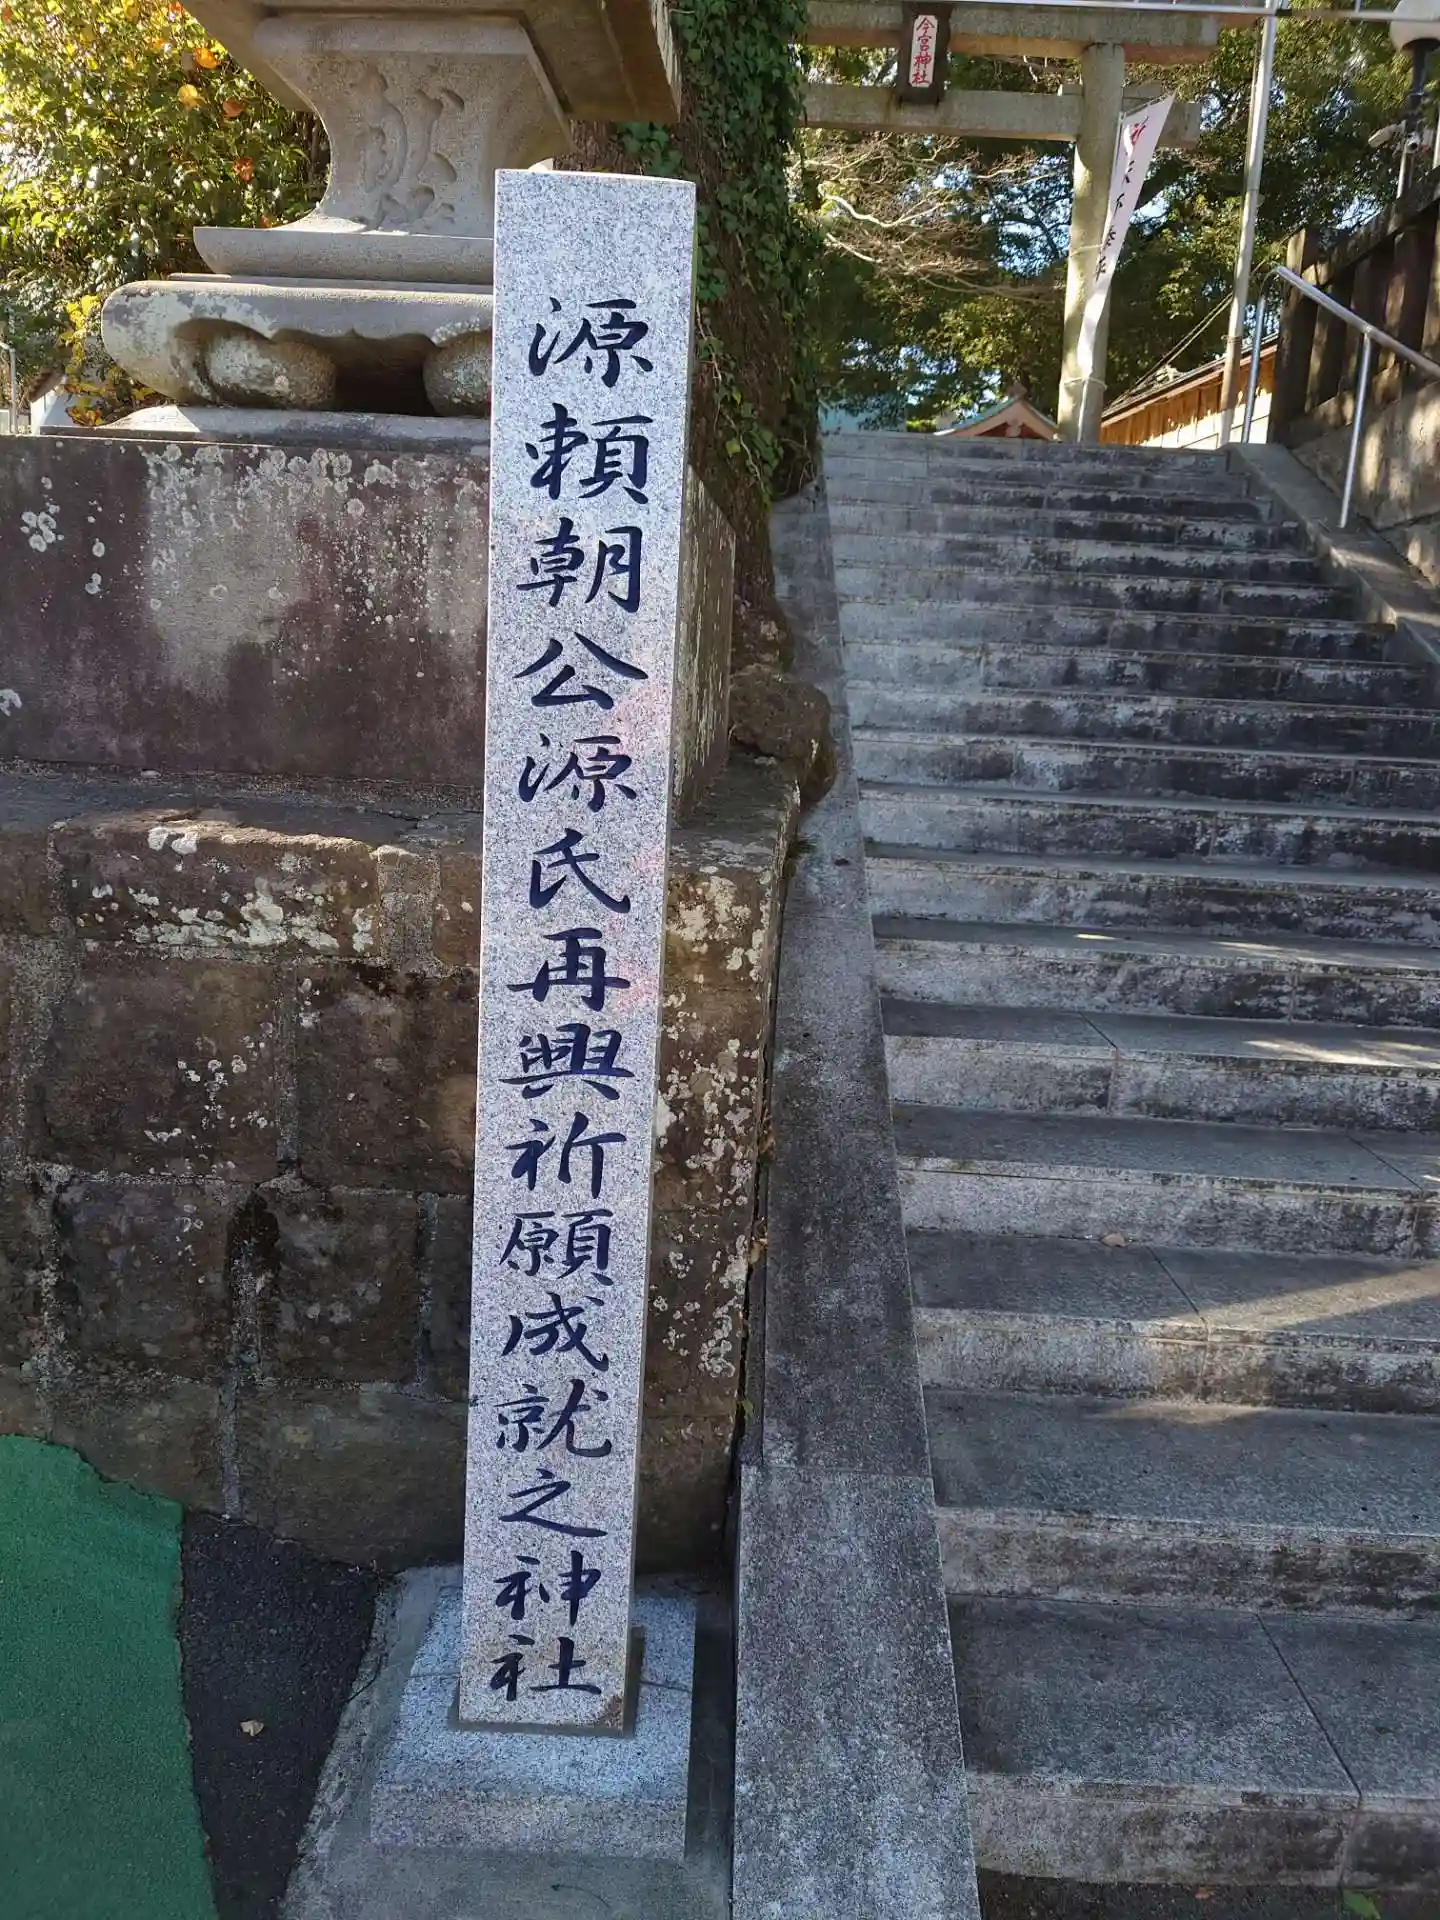 今宮神社
源頼朝公源氏再興祈願成就之神社